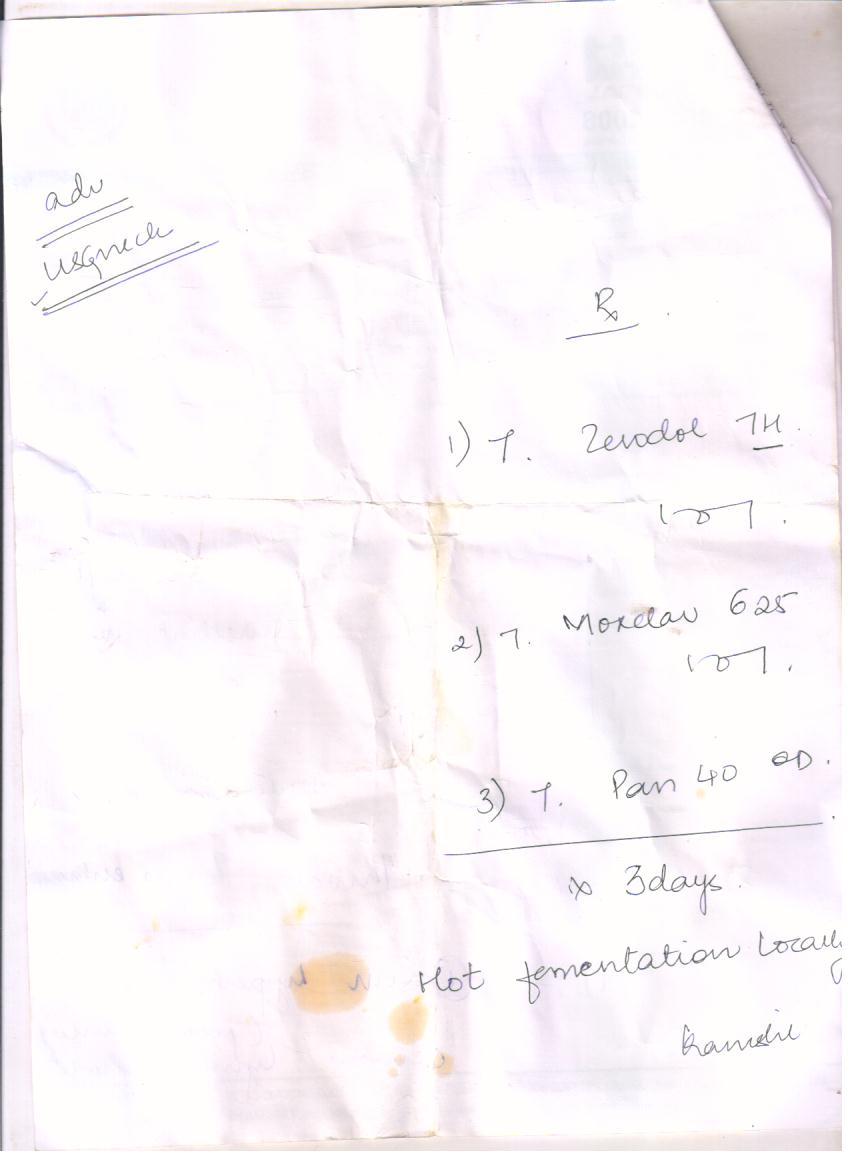 adv
USG neck
Rx
1) T. Zerodol TH
1-0-1.
2) T. Moxclav 625
1-0-1.
3) T. Pan 40 OD.
x 3days.
Hot fementation Locally